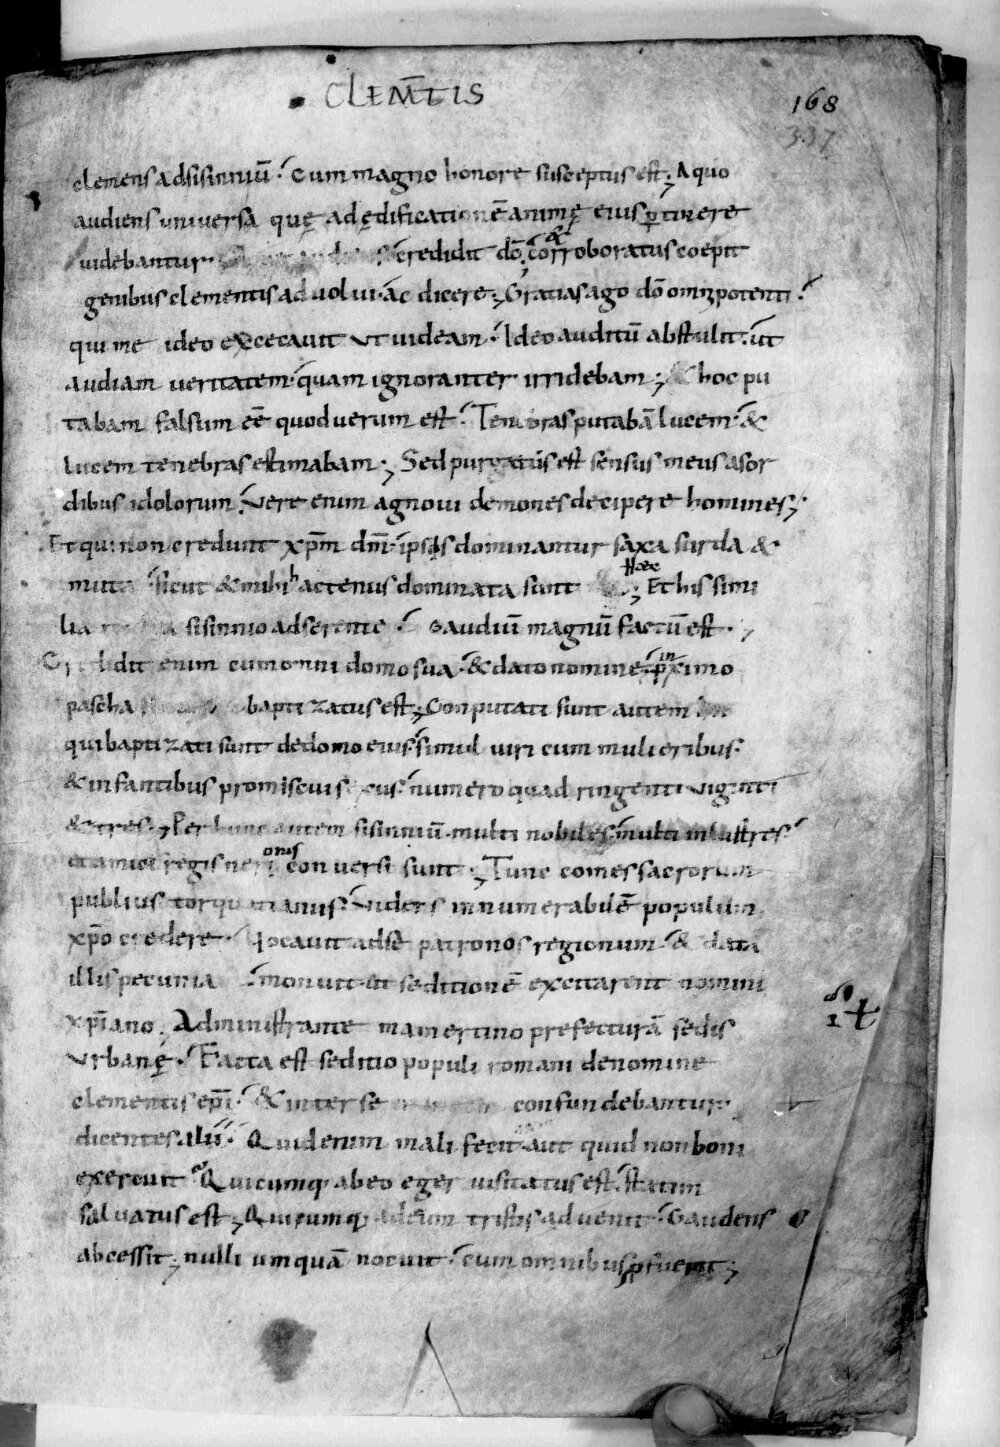 CLEM̅TIS
168
337
clemens ad sisinniū. Cum magno honore susceptus est; A quo
audiens universa quę ad ędificationē animę eius ꝑtinere
videbantur credidit dō. & corroboratus coepit
genibus clementis advolvi. ac dicere; Gratias ago dō omnipotenti.
qui me ideo excecavit ut videam. Ideo auditū abstulit. ut
audiam veritatem. quam ignoranter irridebam; hoc pu
tabam falsum eē quod verum est. Tenebras putabā lucem. &
lucem tenebras estimabam; Sed purgatus est sensus meus a sor
dibus idolorum. Vere enim agnovi demones decipere homines;
Et qui non credunt xp̄m dn̄m. ipsis dominantur saxa surda &
muta sicut & mihi hactenus dominata sunt; Hæc Et his simi
lia sisinnio adserente. Gaudiū magnū factū est.
Credidit enim cum omni domo sua. & dato nomine. in proximo
pascha baptizatus est; Conputati sunt autem
qui baptizati sunt de domo eius. simul viri cum mulieribus.
& infantibus promiscuis numero quadringenti viginti
& tres; Per hunc autem sisinniū. multi nobiles. multi inlustres.
et amici regis neronis conversi sunt; Tunc comes sacrorum
publius torquitianus. Videns innumerabilē populum
xp̄o credere. Vocavit ad sē patronos regionum. & data
illis pecunia monuit ut seditionē excitarent nomini
xp̄iano. Administrante mamertino prefecturā sedis
urbanę. Facta est seditio populi romani de nomine
clementis ep̄i. & inter se confundebantur.
dicentes alii. Quid enim mali fecit. aut quid non boni
exercuit. Quicumq; ab eo eger visitatus est. statim
salvatus est; Quicumq; ad eum tristis advenit. Gaudens
abcessit; nulli umquā nocuit. cum omnibus ꝓfuerit;